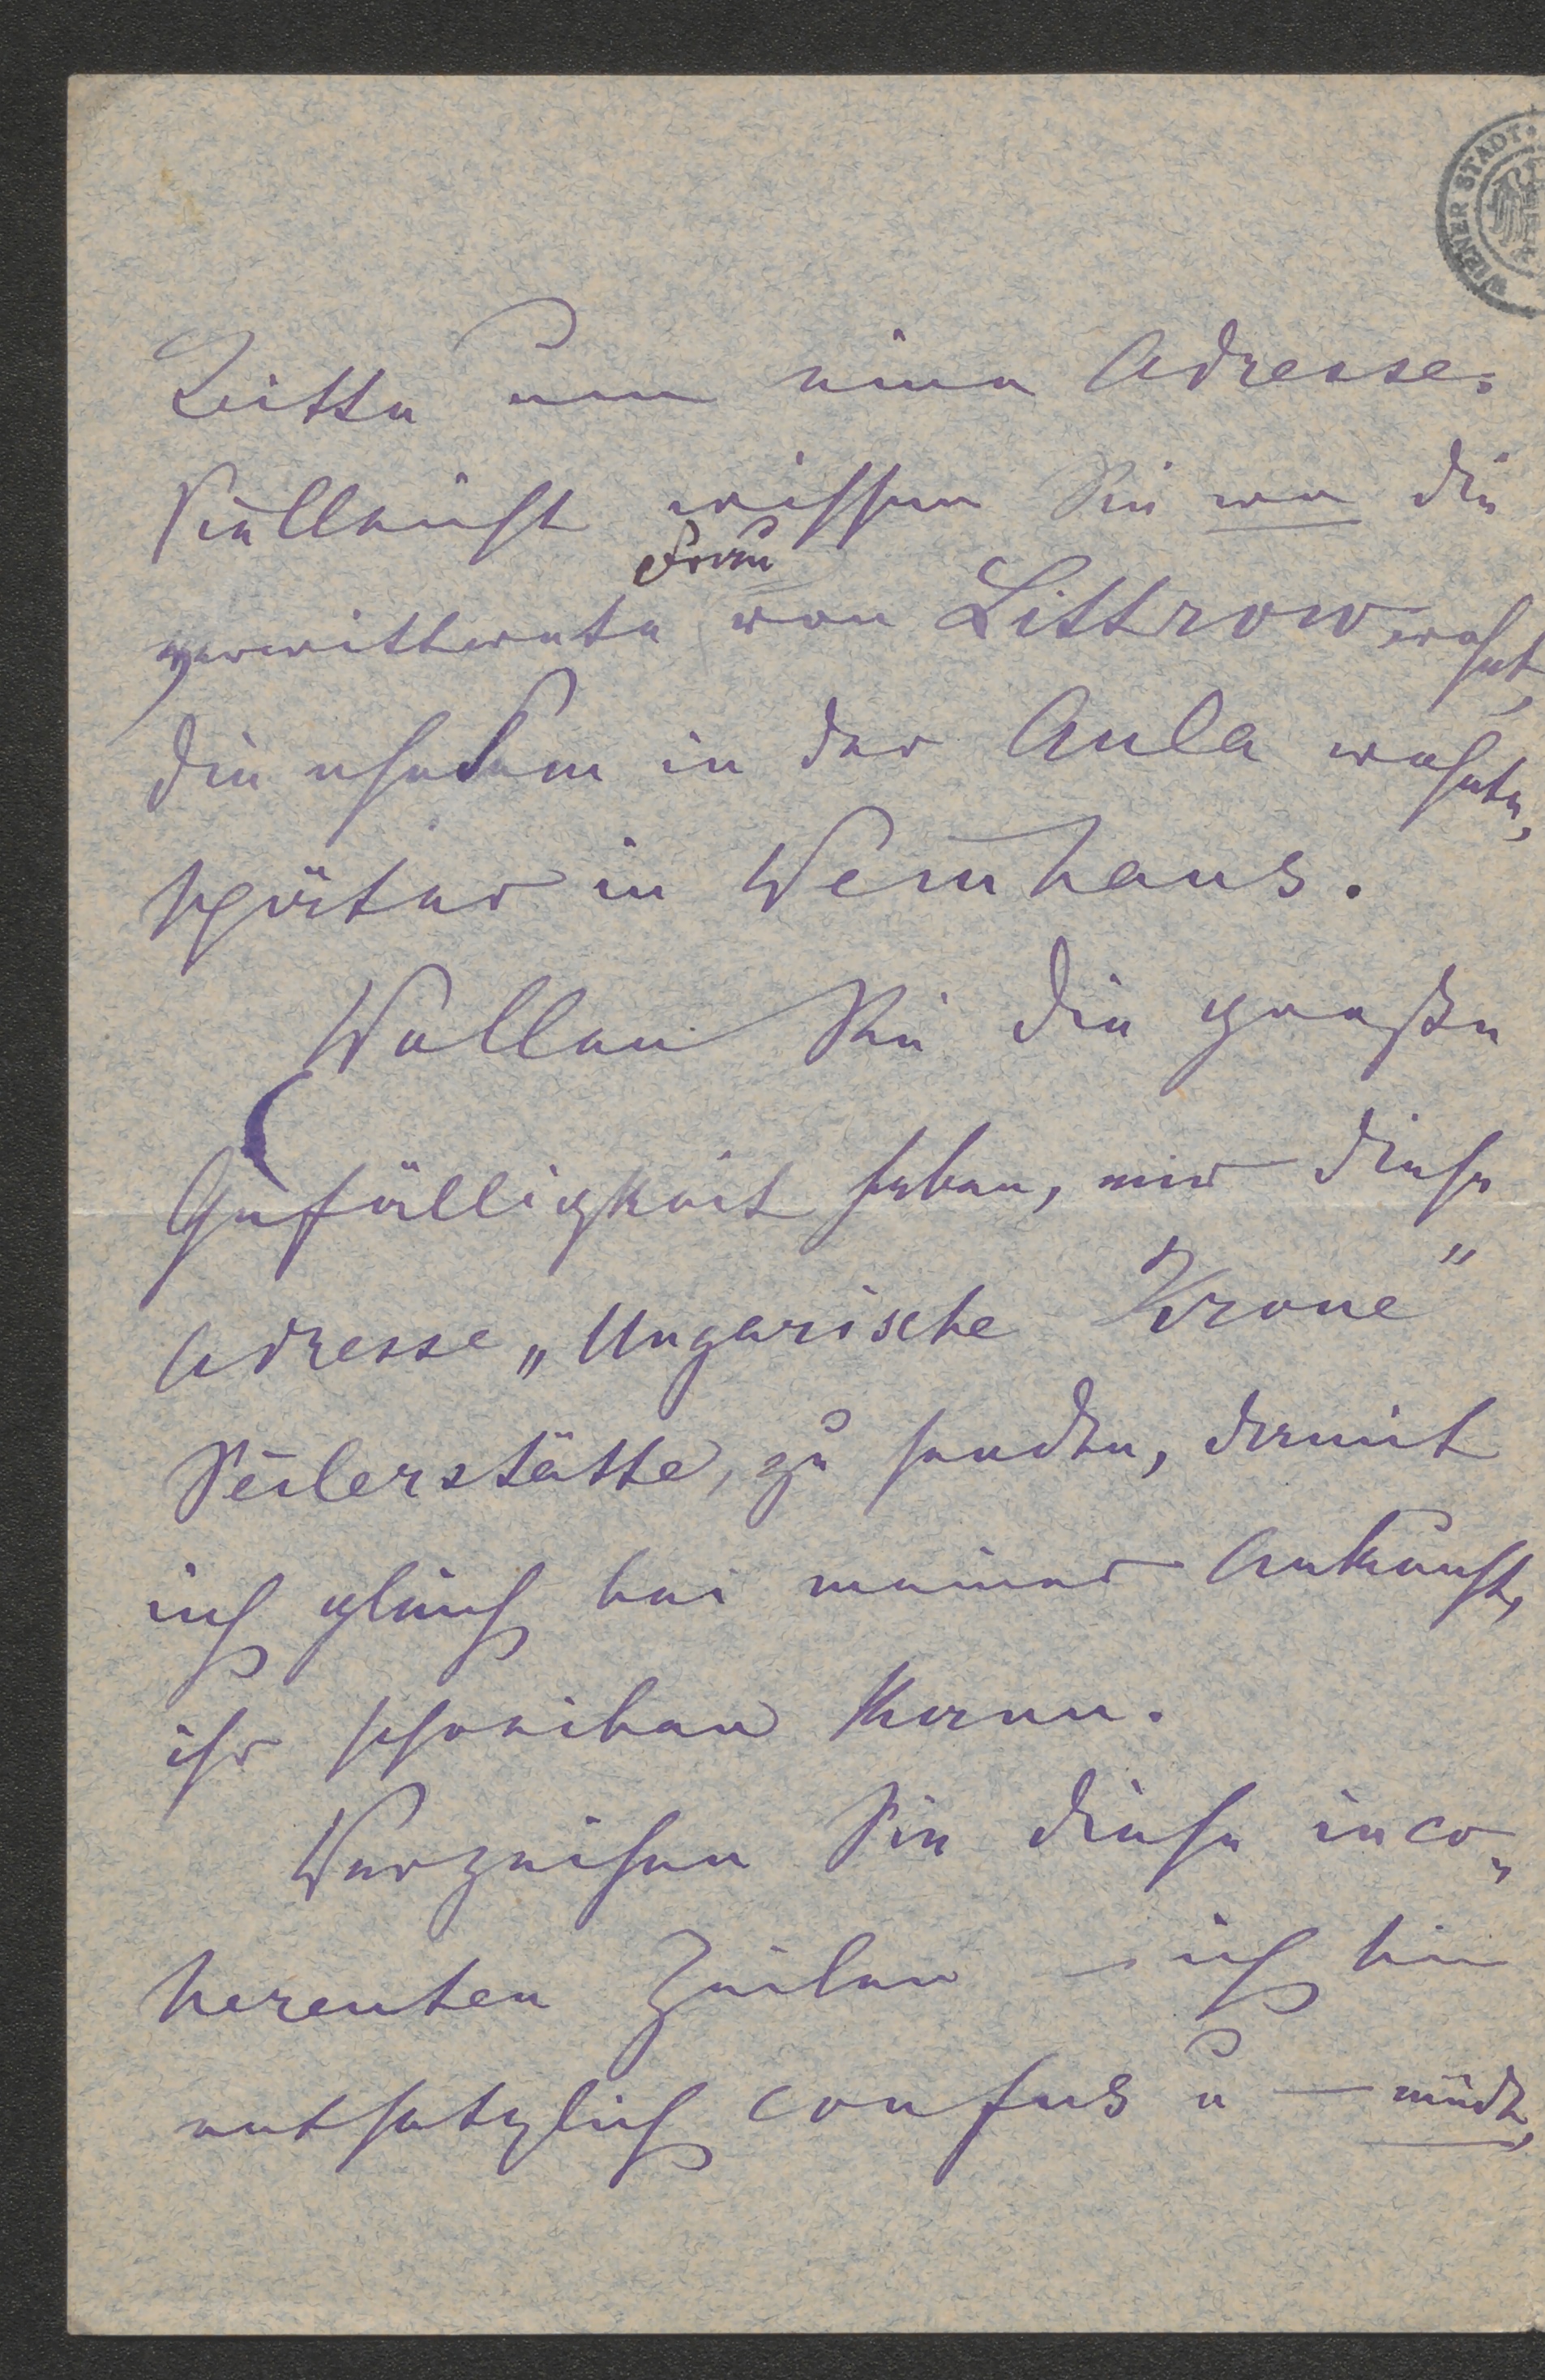 WIENER STADT
Bitte um eine Adresse.
Vielleicht wissen Sie wo die
Frau
verwittwete von Littrow wohnt,
die ehedem in der Aula wohnte,
später in Weinhaus.
Wollen Sie die große
Gefälligkeit haben, mir diese
Adresse „Ungarische Krone"
Seilerstätte, zu senden, damit
ich gleich bei meiner Ankunft,
ihr schreiben kann.
Verzeihen Sie diese inco-
herenten Zeilen – ich bin
entsetzlich confus u – müde,